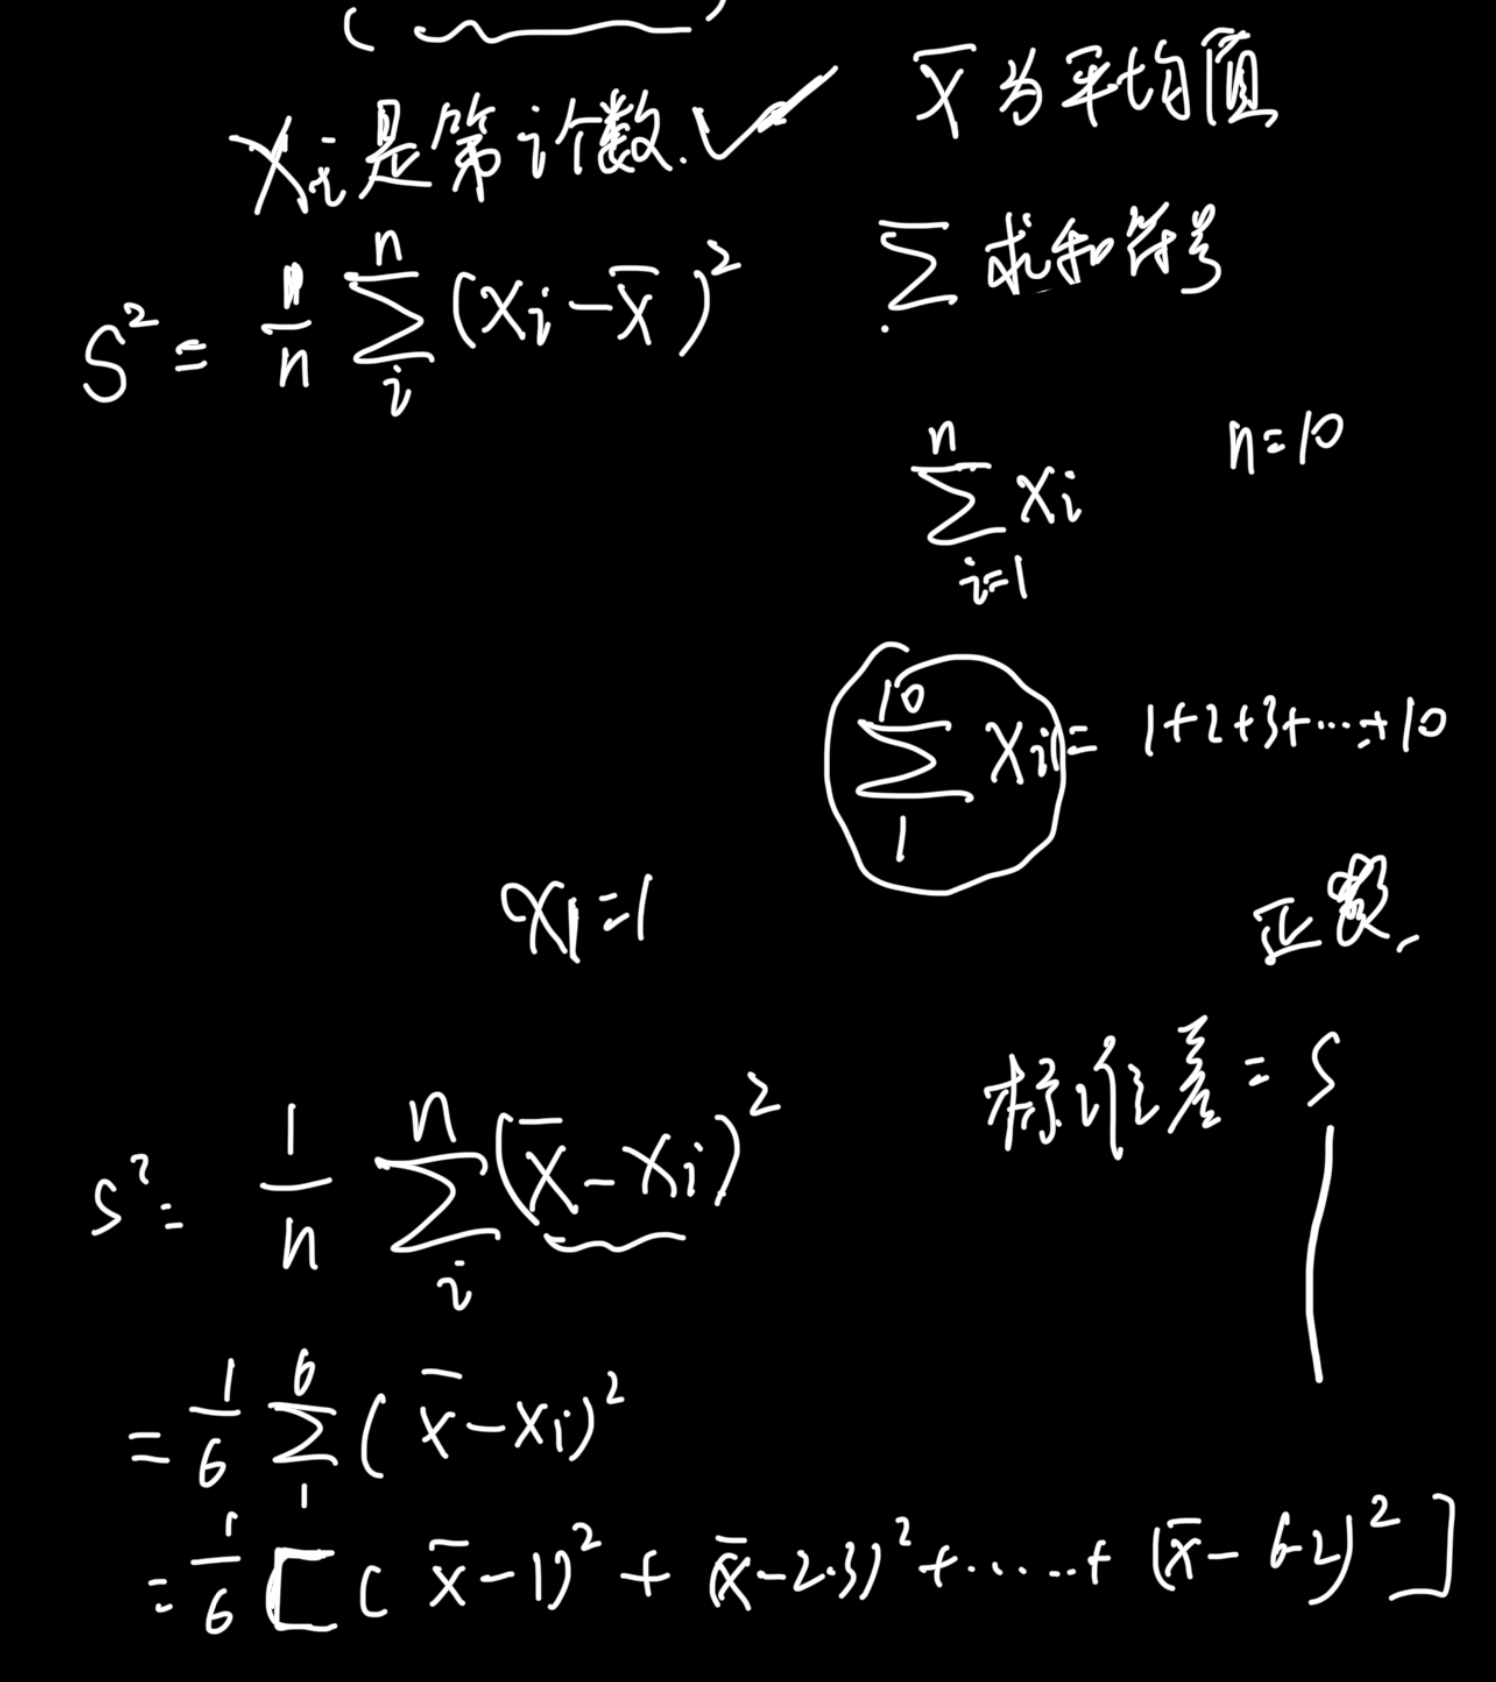 Xi是第i个数.✓
X̄为平均值
S² = 1/n ∑ⁿᵢ (Xi-X̄)²
∑ 求和符号
∑ⁿᵢ₌₁ Xi n=10
∑¹⁰₁ Xi = 1+2+3+……+10
X1=1
正数.
标准差=S
S²= 1/n ∑ⁿᵢ (X̄-Xi)²
= 1/6 ∑⁶₁ (X̄-Xi)²
= 1/6 [(X̄-1)² + (X̄-2.3)² +……+ (X̄-6.2)²]